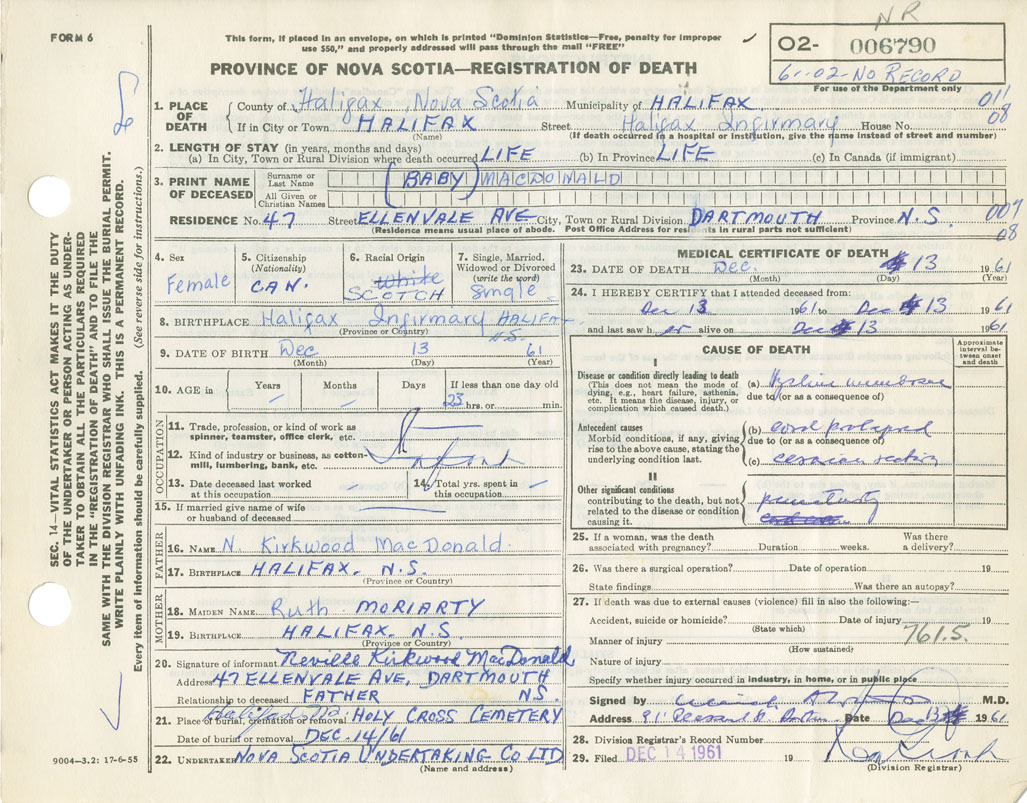 NR
FORM 6
This form, if placed in an envelope, on which is printed "Dominion Statistics—Free, penalty for improper
use $50," and properly addressed will pass through the mail "FREE"
PROVINCE OF NOVA SCOTIA—REGISTRATION OF DEATH
O2- 006790
61-02-NO RECORD
For use of the Department only
1. PLACE OF DEATH
County of Halifax, Nova Scotia Municipality of HALIFAX 011
If in City or Town HALIFAX Street Halifax Infirmary House No. 08
(Name) (If death occurred in a hospital or institution, give the name instead of street and number)
2. LENGTH OF STAY (in years, months and days)
(a) In City, Town or Rural Division where death occurred LIFE (b) In Province LIFE (c) In Canada (if immigrant)
3. PRINT NAME OF DECEASED
Surname or Last Name (BABY) MACDONALD
All Given or Christian Names
RESIDENCE No. 47 Street ELLENVALE AVE City, Town or Rural Division DARTMOUTH Province N.S. 009
(Residence means usual place of abode. Post Office Address for residents in rural parts not sufficient) 08
4. Sex
Female
5. Citizenship
(Nationality)
CAN.
6. Racial Origin
White
SCOTCH
7. Single, Married,
Widowed or Divorced
(write the word)
Single
8. BIRTHPLACE Halifax Infirmary HALIFAX
(Province or Country) N.S.
9. DATE OF BIRTH Dec 13 61
(Month) (Day) (Year)
10. AGE in Years Months Days If less than one day old
23 hrs. or min.
OCCUPATION
11. Trade, profession, or kind of work as
spinner, teamster, office clerk, etc.
12. Kind of industry or business, as cotton-
mill, lumbering, bank, etc. Infant
13. Date deceased last worked
at this occupation
14. Total yrs. spent in
this occupation
15. If married give name of wife
or husband of deceased
FATHER
16. NAME N. Kirkwood MacDonald
17. BIRTHPLACE HALIFAX. N.S.
(Province or Country)
MOTHER
18. MAIDEN NAME Ruth MORIARTY
19. BIRTHPLACE HALIFAX. N.S.
(Province or Country)
20. Signature of informant Neville Kirkwood MacDonald
Address 47 ELLENVALE AVE, DARTMOUTH
Relationship to deceased FATHER N.S.
21. Place of burial, cremation or removal Halifax N.S. HOLY CROSS CEMETERY
Date of burial or removal DEC. 14/61
22. UNDERTAKER NOVA SCOTIA UNDERTAKING CO LTD
(Name and address)
MEDICAL CERTIFICATE OF DEATH
23. DATE OF DEATH Dec. 13 1961
(Month) (Day) (Year)
24. I HEREBY CERTIFY that I attended deceased from:
Dec 13 1961 to Dec 13 1961
and last saw h er alive on Dec 13 1961
CAUSE OF DEATH
Approximate
interval be-
tween onset
and death
I
Disease or condition directly leading to death
(This does not mean the mode of
dying, e.g., heart failure, asthenia,
etc. It means the disease, injury, or
complication which caused death.)
(a) Hyaline membrane
due to (or as a consequence of)
Antecedent causes
Morbid conditions, if any, giving
rise to the above cause, stating the
underlying condition last.
(b) cord prolapsed
due to (or as a consequence of)
(c) cesarian section
II
Other significant conditions
contributing to the death, but not
related to the disease or condition
causing it.
prematurity
25. If a woman, was the death
associated with pregnancy? Duration weeks. Was there
a delivery?
26. Was there a surgical operation? Date of operation 19
State findings Was there an autopsy?
27. If death was due to external causes (violence) fill in also the following:—
Accident, suicide or homicide? Date of injury 19
(State which)
761.5.
Manner of injury
(How sustained)
Nature of injury
Specify whether injury occurred in industry, in home, or in public place
Signed by M.D.
Address Date Dec 13 1961
28. Division Registrar's Record Number
29. Filed DEC 14 1961 19
(Division Registrar)
SEC. 14—VITAL STATISTICS ACT MAKES IT THE DUTY
OF THE UNDERTAKER OR PERSON ACTING AS UNDER-
TAKER TO OBTAIN ALL THE PARTICULARS REQUIRED
IN THE "REGISTRATION OF DEATH" AND TO FILE THE
SAME WITH THE DIVISION REGISTRAR WHO SHALL ISSUE THE BURIAL PERMIT.
WRITE PLAINLY WITH UNFADING INK. THIS IS A PERMANENT RECORD.
Every item of information should be carefully supplied. (See reverse side for instructions.)
9004—3.2: 17-6-55